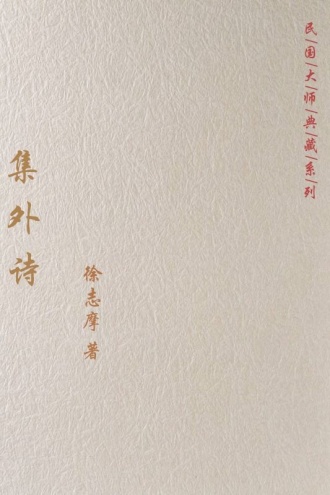 民|国|大|师|典|藏|系|列
集外诗
徐志摩 著